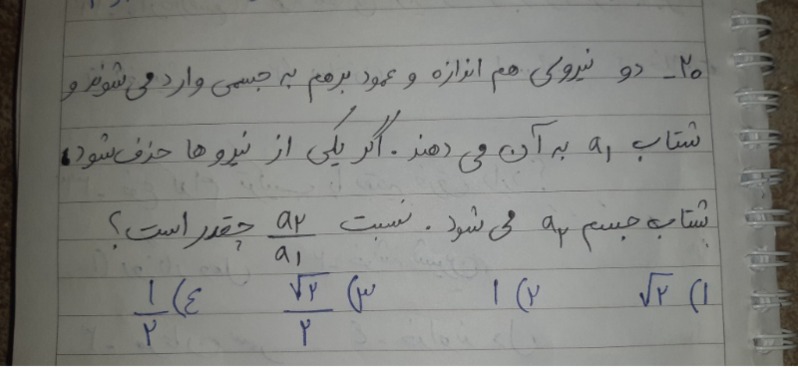 ۲۰- دو نیروی هم اندازه و عمود برهم به جسمی وارد می شوند و
شتاب a₁ به آن می دهند. اگر یکی از نیرو ها حذف شود،
شتاب جسم a₂ می شود. نسبت a₂/a₁ چقدر است؟
۱) √۲ ۲) ۱ ۳) √۲/۲ ٤) ۱/۲